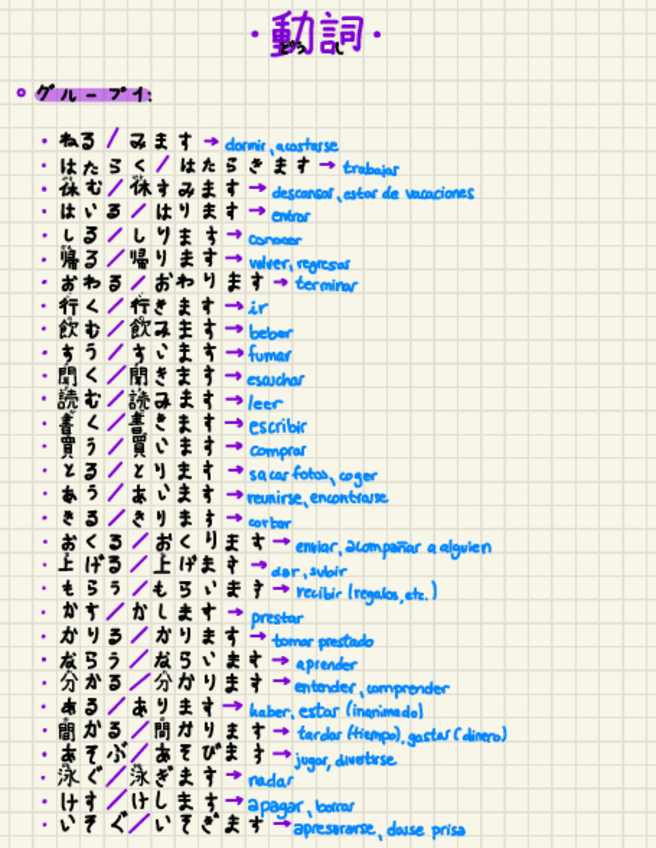 ・動詞・
どうし
グループ1:
・ねる / みます → dormir, acostarse
・はたらく / はたらきます → trabajar
・休む / 休すみます → descansar, estar de vacaciones
・はいる / はります → entrar
・しる / しります → conocer
・帰る / 帰ります → volver, regresar
・おわる / おわります → terminar
・行く / 行きます → ir
・飲む / 飲みます → beber
・すう / すいます → fumar
・聞く / 聞きます → escuchar
・読む / 読みます → leer
・書く / 書きます → escribir
・買う / 買います → comprar
・とる / とります → sacar fotos, coger
・あう / あいます → reunirse, encontrarse
・きる / きります → cortar
・おくる / おくります → enviar, acompañar a alguien
・上げる / 上げます → dar, subir
・もらう / もらいます → recibir (regalos, etc.)
・かす / かします → prestar
・かりる / かります → tomar prestado
・ならう / ならいます → aprender
・分かる / 分かります → entender, comprender
・ある / あります → haber, estar (inanimado)
・間かる / 間かります → tardar (tiempo), gastar (dinero)
・あそぶ / あそびます → jugar, divertirse
・泳ぐ / 泳ぎます → nadar
・けす / けします → apagar, borrar
・いそぐ / いそぎます → apresurarse, darse prisa